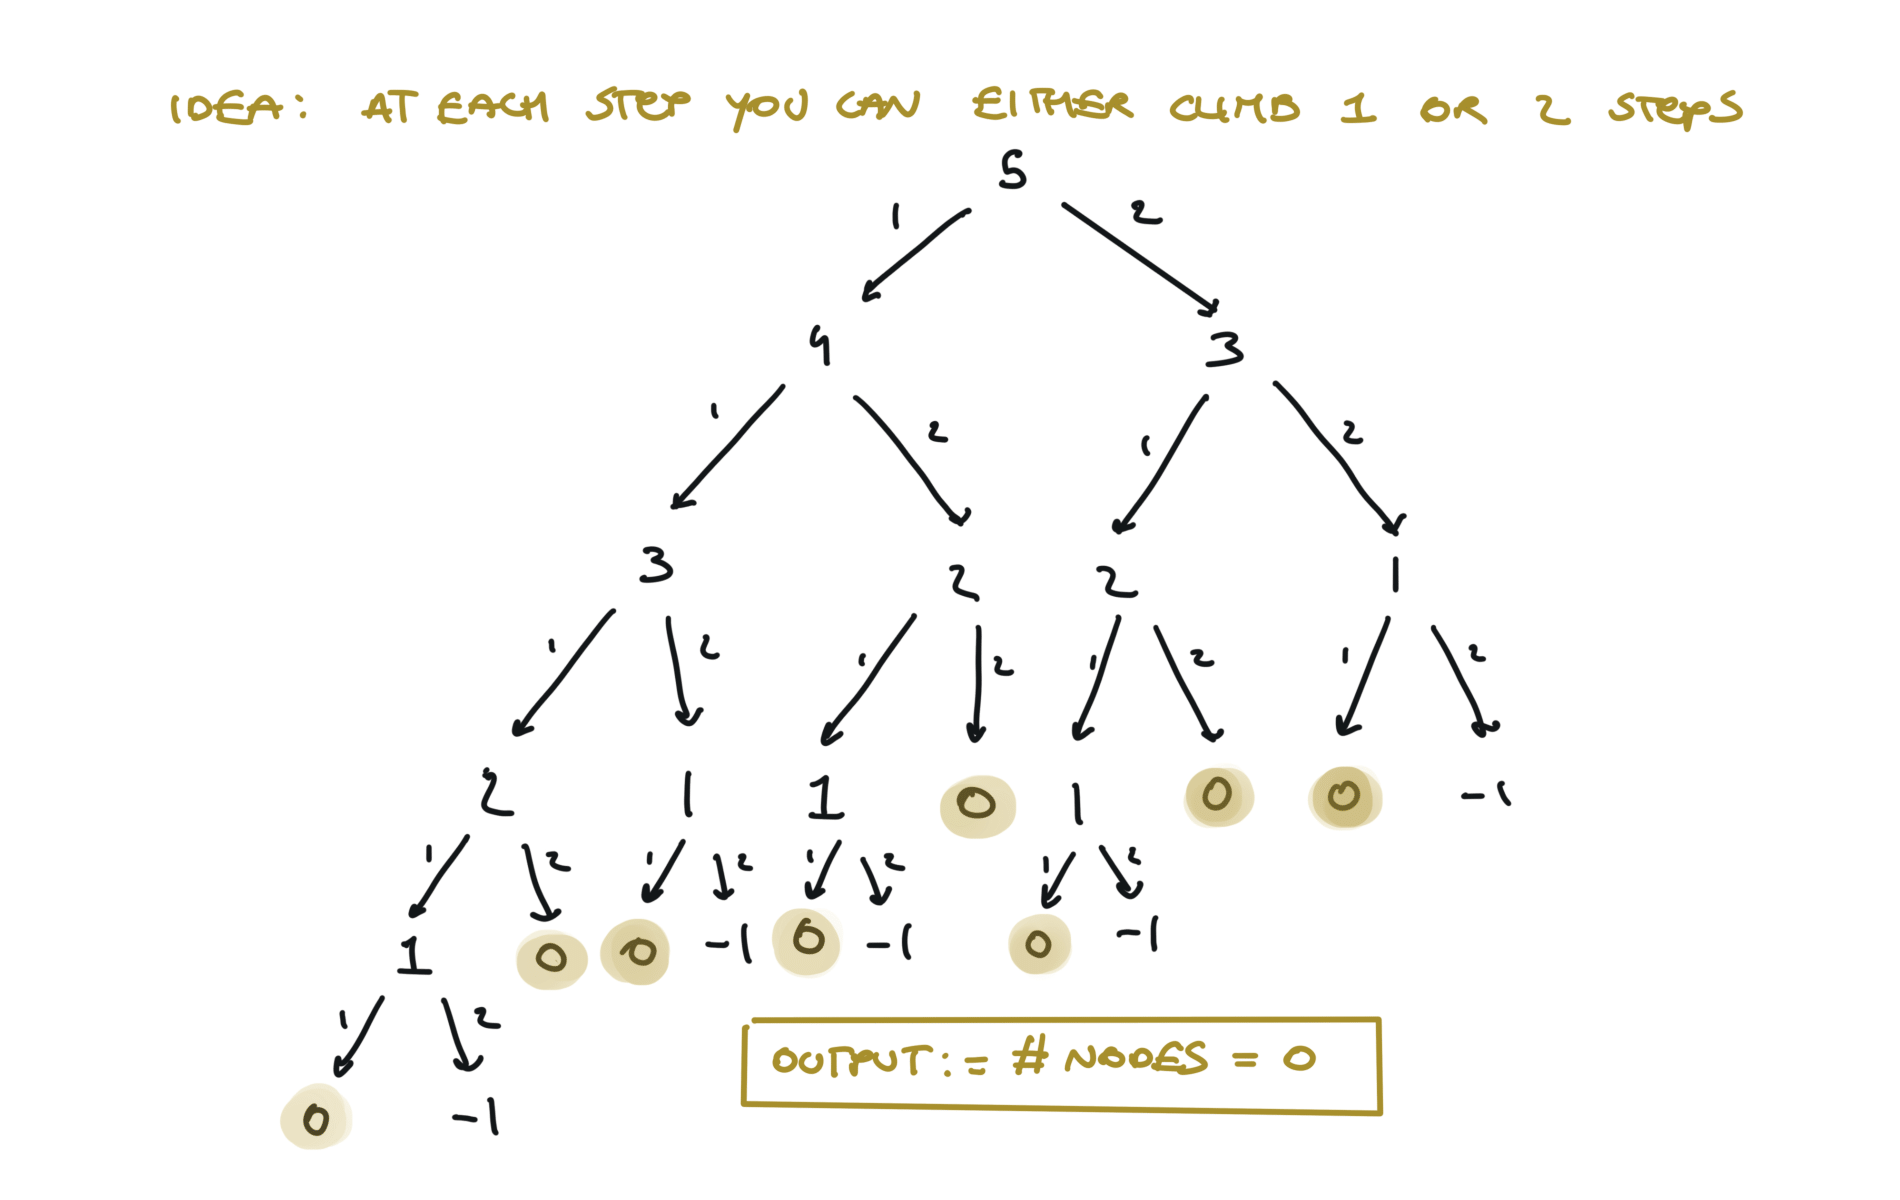 IDEA: AT EACH STEP YOU CAN EITHER CLIMB 1 OR 2 STEPS
5
1 2
4 3
1 2 1 2
3 2 2 1
1 2 1 2 1 2 1 2
2 1 1 0 1 0 0 -1
1 2 1 2 1 2 1 2
1 0 0 -1 0 -1 0 -1
1 2
0 -1
OUTPUT := # NODES = 0